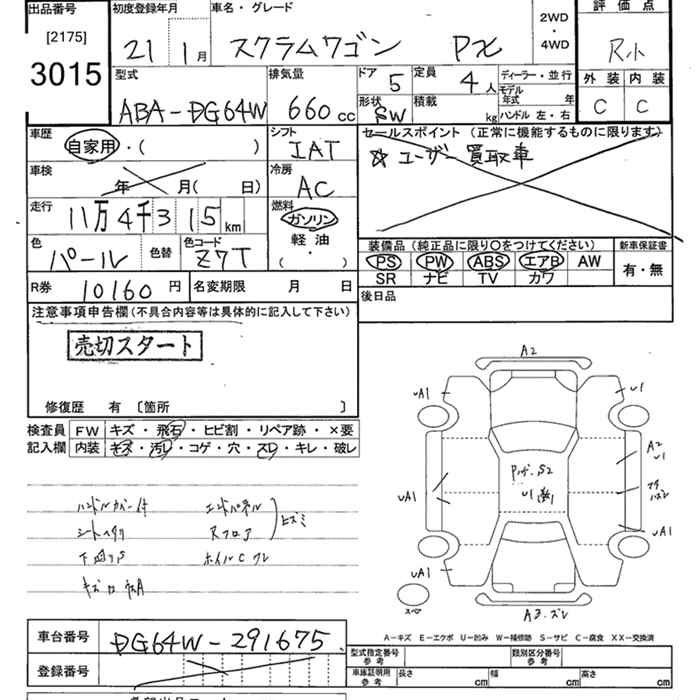 出品番号 初度登録年月 車名・グレード 評価点
[2175]
3015
21 1月 スクラムワゴン PX
2WD
・
4WD
R小
外装 内装
C C
型式 排気量 ドア 定員 ディーラー・並行
ABA-DG64W 660cc 5 4人
モデル年式 年
形状 積載
SW kg ハンドル 左・右
車歴 シフト セールスポイント（正常に機能するものに限ります）
自家用・（ ） IAT ☆ユーザー買取車
車検 冷房
年 月（ 日） AC
走行 燃料
11万4千315km ガソリン
軽油
（・ ）
色 色替 色コード
パール Z7T
装備品（純正品に限り○をつけてください） 新車保証書
PS PW ABS エアB AW 有・無
SR ナビ TV カワ
R券 10160円 名変期限 月 日 後日品
注意事項申告欄（不具合内容等は具体的に記入して下さい）
売切スタート
修復歴 有 〔箇所 〕
検査員 FW キズ・飛石・ヒビ割・リペア跡・×要
記入欄 内装 キズ・汚レ・コゲ・穴・スレ・キレ・破レ
ハンドルカバー付 エンドパネル
シートヘタリ Rフロア ヒズミ
ホイルC ワレ
A2
UA1 U1
A2
U1
UA1
UA1
UA1
スペア
A3.ズレ
A－キズ E－エクボ U－凹み W－補修跡 S－サビ C－腐食 XX－交換済
車台番号 DG64W-291675
登録番号
型式指定番号 参考 類別区分番号 参考
車庫証明用 参考 長さ cm 幅 cm 高さ cm